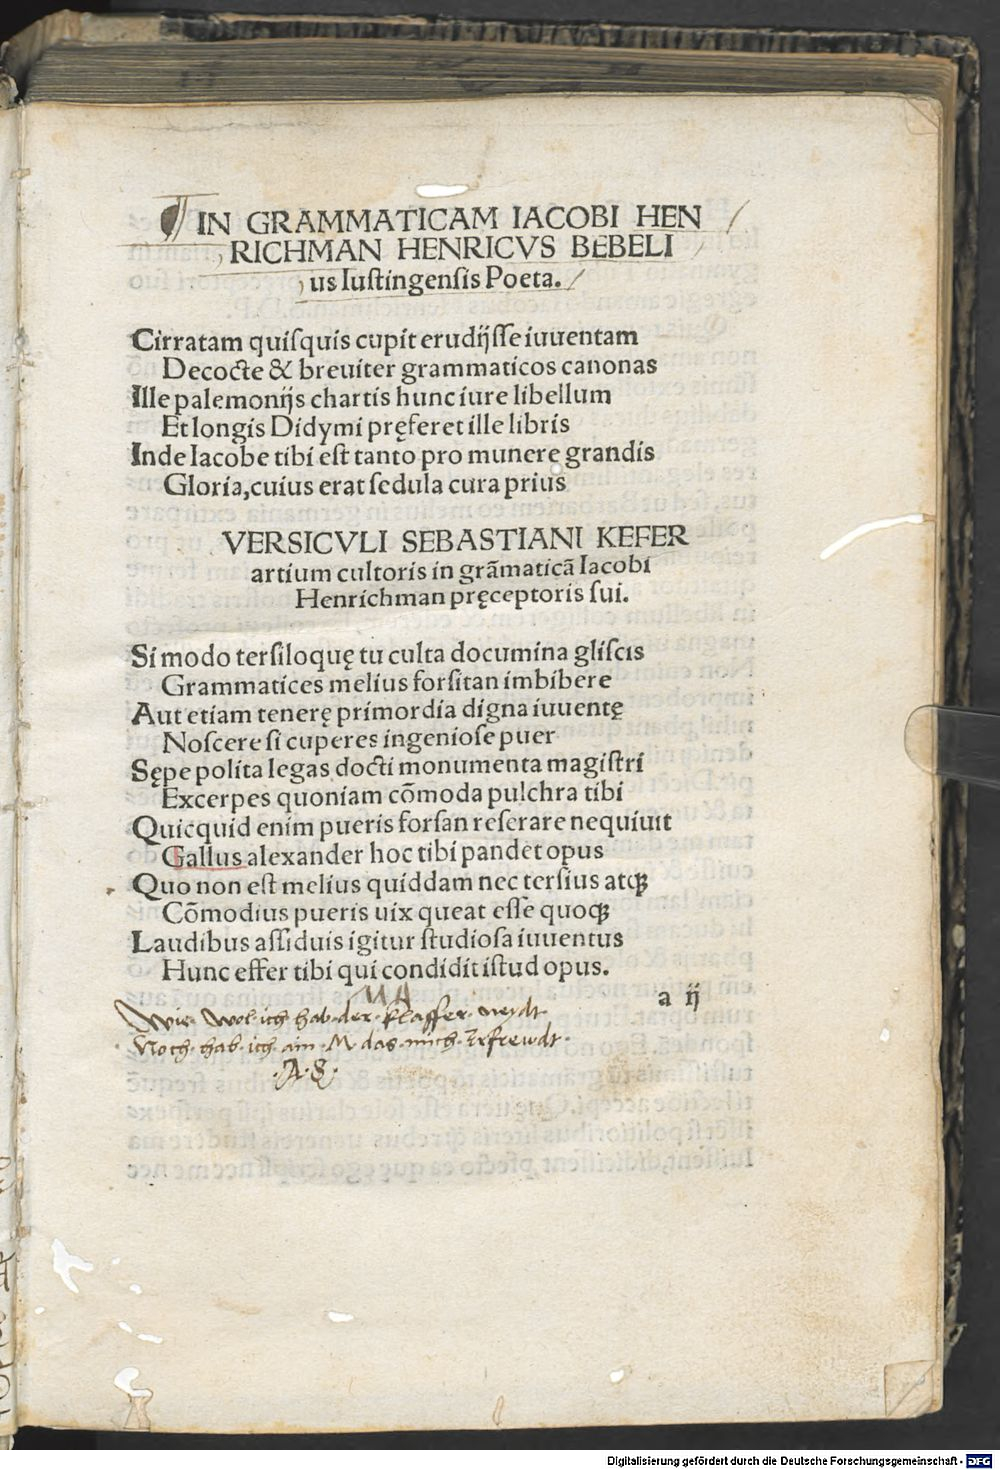 IN GRAMMATICAM IACOBI HEN
RICHMAN HENRICVS BEBELI
us Iustingensis Poeta.
Cirratam quiſquis cupit erudijſſe iuuentam
Decocte & breuiter grammaticos canonas
Ille palemonijs chartis hunc iure libellum
Et longis Didymi pręferet ille libris
Inde Iacobe tibi eſt tanto pro munere grandis
Gloria,cuius erat ſedula cura prius
VERSICVLI SEBASTIANI KEFER
artium cultoris in grãmaticã Iacobi
Henrichman pręceptoris ſui.
Si modo terſiloquę tu culta documina gliſcis
Grammatices melius forſitan imbibere
Aut etiam tenerę primordia digna iuuentę
Noſcere ſi cuperes ingenioſe puer
Sępe polita legas docti monumenta magiſtri
Excerpes quoniam cõmoda pulchra tibi
Quicquid enim pueris forſan reſerare nequiuit
Gallus alexander hoc tibi pandet opus
Quo non eſt melius quiddam nec terſius atqꝫ
Cõmodius pueris uix queat eſſe quoqꝫ
Laudibus aſſiduis igitur ſtudioſa iuuentus
Hunc effer tibi qui condidit iſtud opus.
a ij
Wie wol ich hab der klaffer neydt
Noch hab ich ain M das mich Erfrewdt
A S
Digitalisierung gefördert durch die Deutsche Forschungsgemeinschaft - DFG